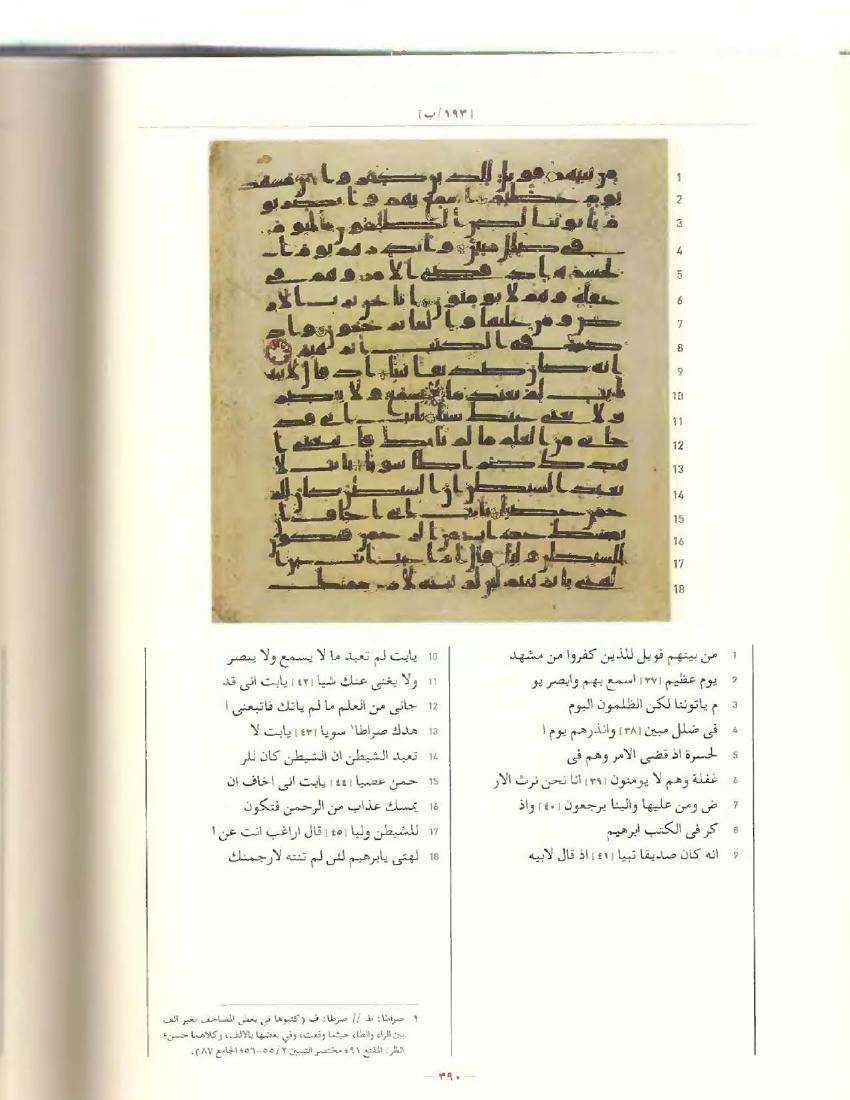 [١٩٣/ب]
1 من بينهم فويل للذين كفروا من مشهد
2 يوم عظيم [٣٧] اسمع بهم وابصر يو
3 م ياتوننا لكن الظلمون اليوم
4 فى ضلل مبين [٣٨] وانذرهم يوم ا
5 لحسرة اذ قضى الامر وهم فى
6 غفلة وهم لا يومنون [٣٩] انا نحن نرث الار
7 ض ومن عليها والينا يرجعون [٤٠] واذ
8 كر فى الكتب ابرهيم
9 انه كان صديقا نبيا [٤١] اذ قال لابيه
10 يابت لم تعبد ما لا يسمع ولا يبصر
11 ولا يغنى عنك شيا [٤٢] يابت انى قد
12 جانى من العلم ما لم ياتك فاتبعنى ا
13 هدك صراطا١ سويا [٤٣] يابت لا
14 تعبد الشيطن ان الشيطن كان للر
15 حمن عصيا [٤٤] يابت انى اخاف ان
16 يمسك عذاب من الرحمن فتكون
17 للشيطن وليا [٤٥] قال اراغب انت عن ا
18 لهتى يابرهيم لئن لم تنته لارجمنك
١ صراطا: ط // صرطا: ف (كتبوها فى بعض المصاحف بغير الف
بين الراء والطاء حيثما وقعت، وفي بعضها بالألف، وكلاهما حسن؛
انظر: المقنع ٩١؛ مختصر التبيين ٢/٥٥-٥٦؛ الجامع ٨٧).
— ٣٩٠ —